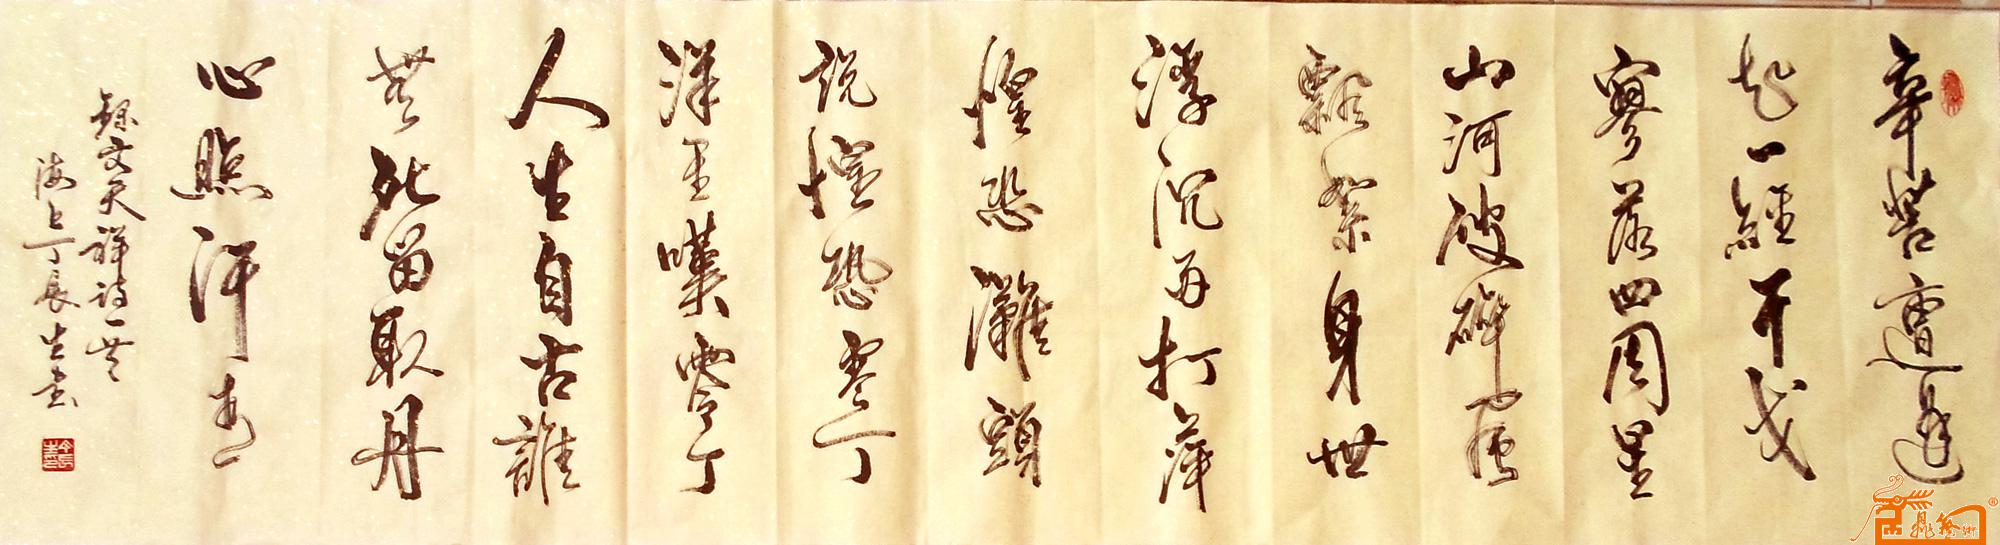 辛苦遭逢
起一經干戈
寥落四周星
山河破碎風
飄絮身世
浮沉雨打萍
惶恐灘頭
說惶恐零丁
洋里嘆零丁
人生自古誰
無死留取丹
心照汗青
錄文天祥詩一首
海上丁長生書